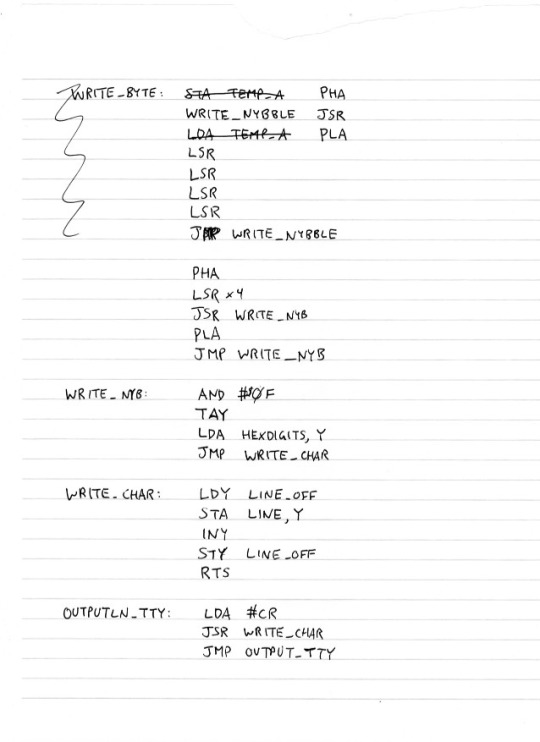 WRITE_BYTE: STA TEMP_A PHA
WRITE_NYBBLE JSR
LDA TEMP_A PLA
LSR
LSR
LSR
LSR
JMP WRITE_NYBBLE
PHA
LSR x4
JSR WRITE_NYB
PLA
JMP WRITE_NYB
WRITE_NYB: AND #$0F
TAY
LDA HEXDIGITS, Y
JMP WRITE_CHAR
WRITE_CHAR: LDY LINE_OFF
STA LINE, Y
INY
STY LINE_OFF
RTS
OUTPUTLN_TTY: LDA #CR
JSR WRITE_CHAR
JMP OUTPUT_TTY